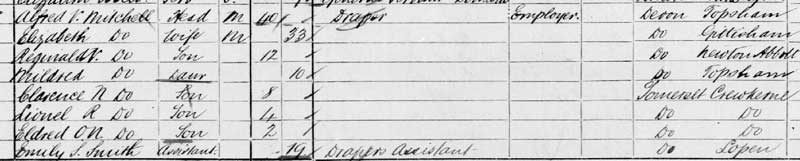 Alfred V. Mitchell Head M 40 Draper Employer Devon Topsham
Elizabeth Do Wife M 33 Do Gittisham
Reginald V. Do Son 12 Do Newton Abbott
Mildred Do Daur 10 Do Topsham
Clarence N Do Son 8 Somerset Crewkerne
Lionel R Do Son 4 Do Do
Eldred O N Do Son 2 Do Do
Emily S. Smith Assistant 19 Drapers Assistant Do Lopen